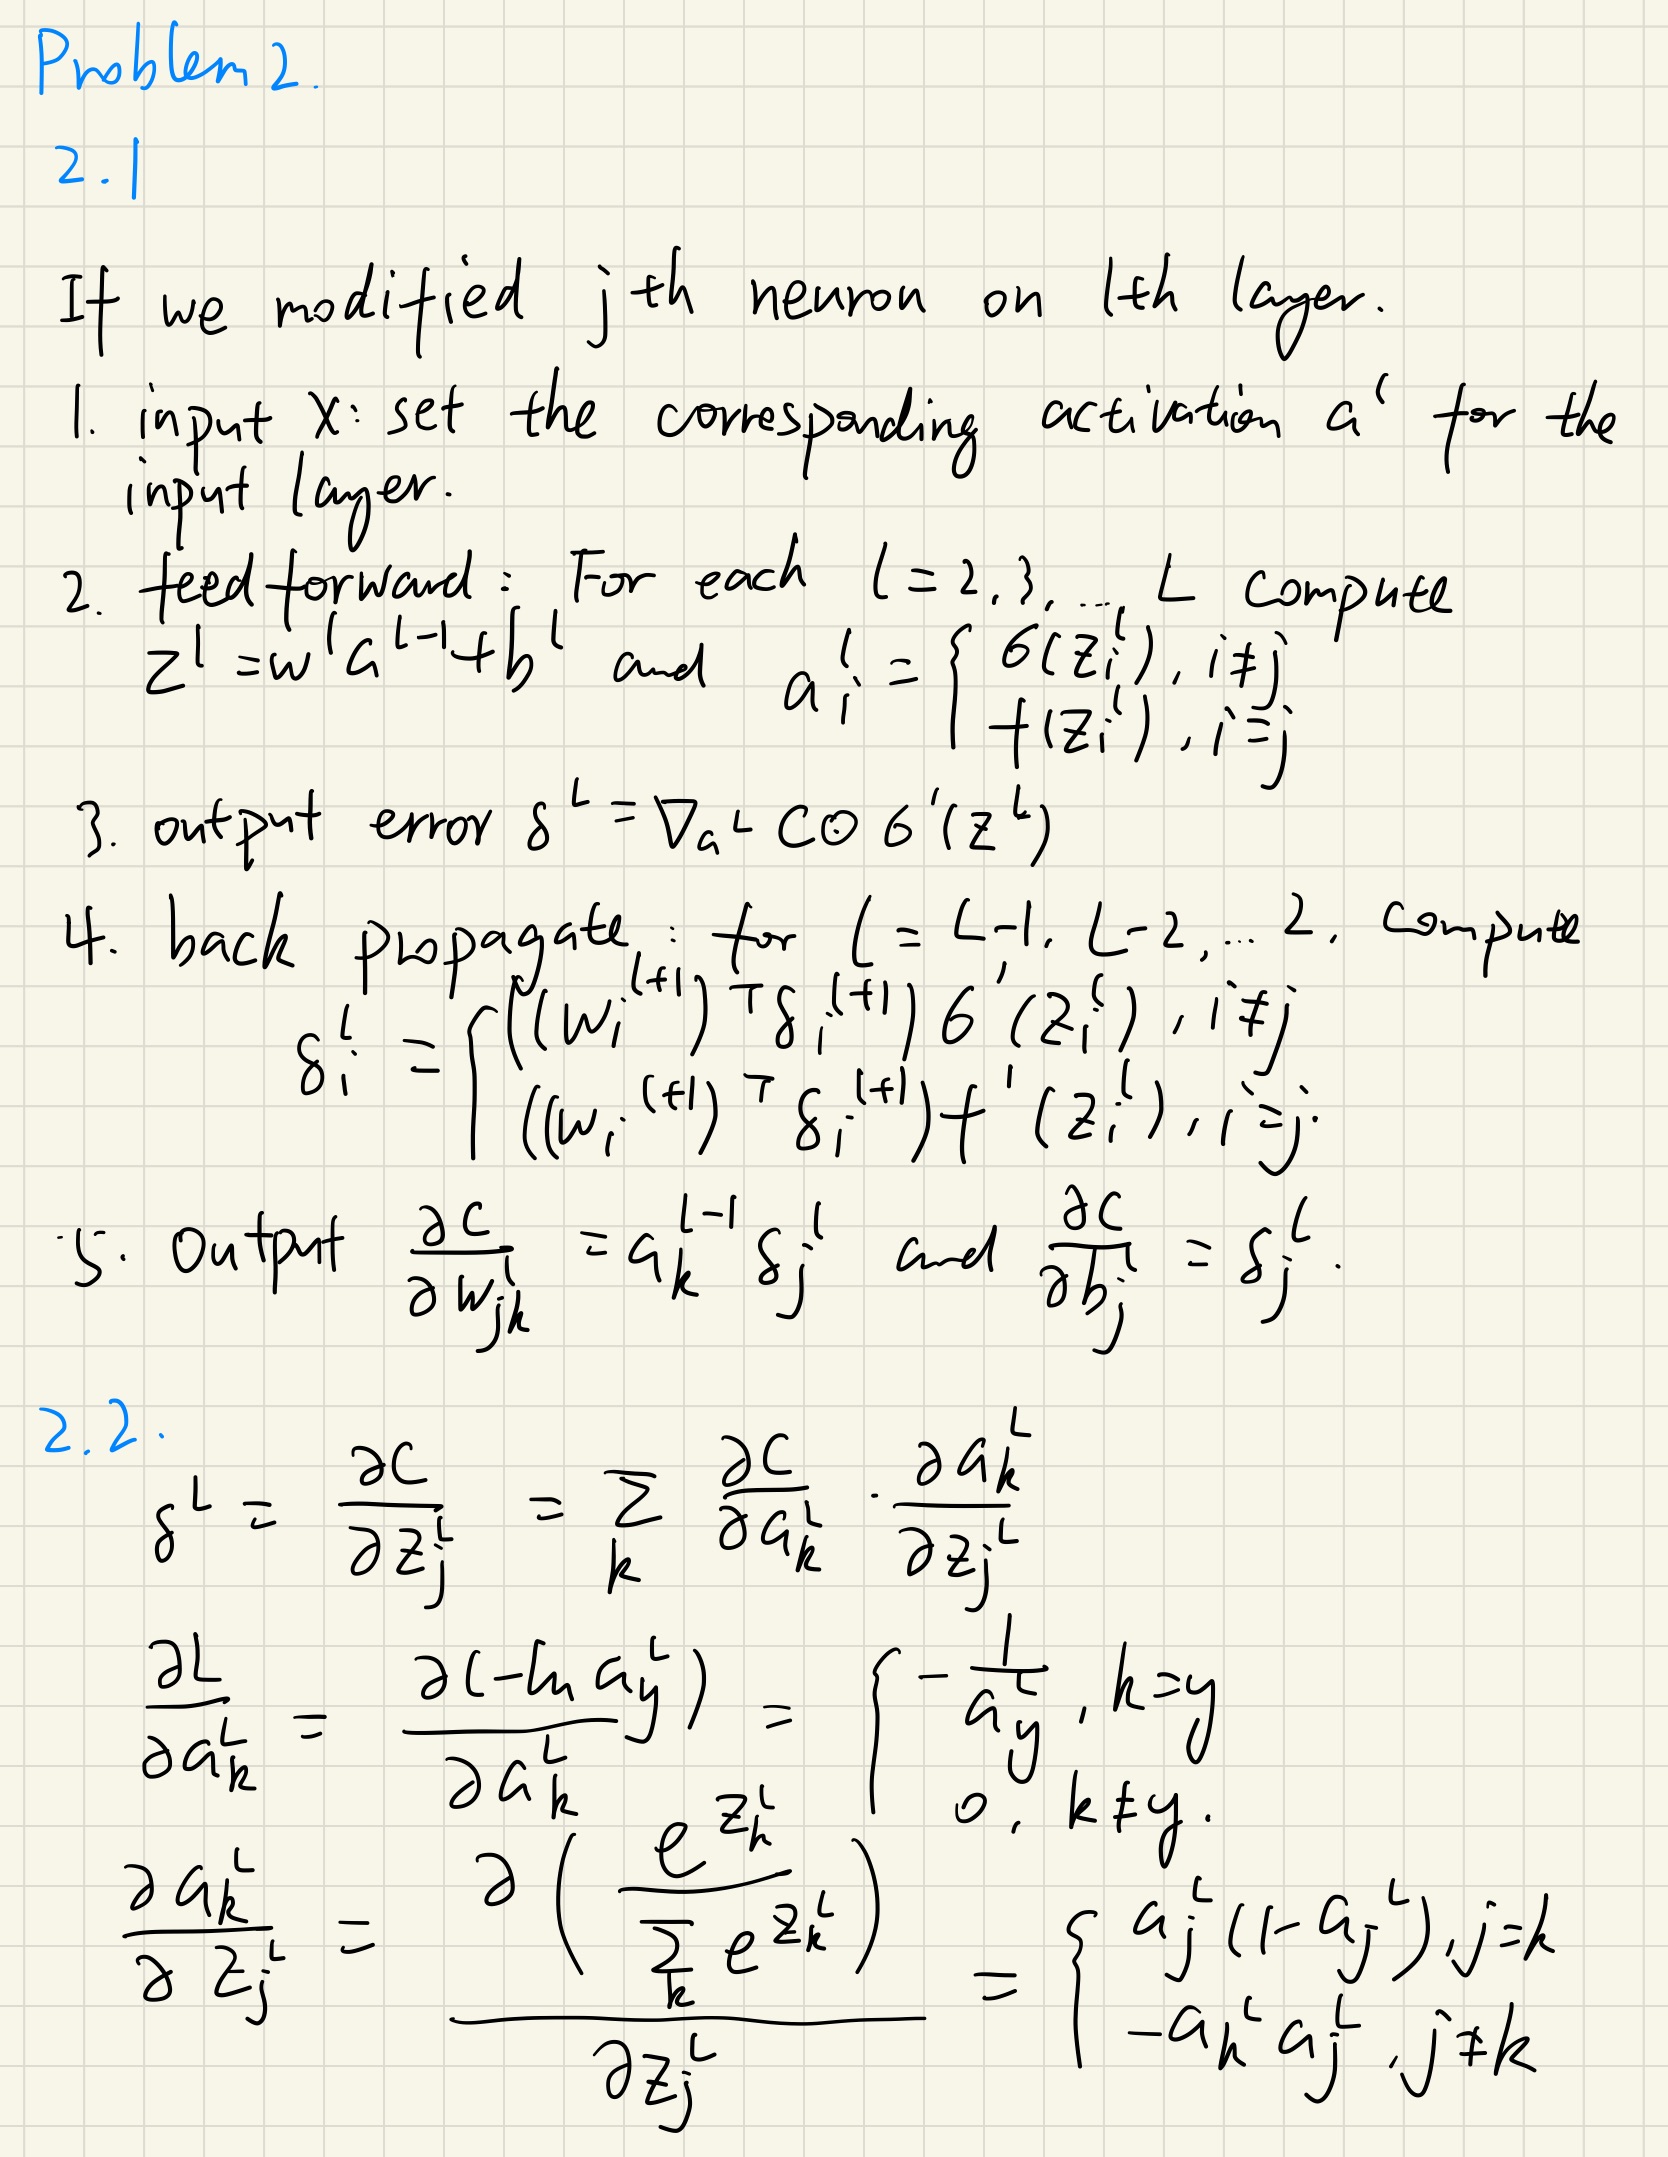 Problem 2.
2.1
If we modified jth neuron on lth layer.
1. input x: set the corresponding activation a^l for the
input layer.
2. feed forward: For each l = 2, 3, ... L compute
z^l = w^l a^{l-1} + b^l and a_i^l = { σ(z_i^l), i ≠ j
f(z_i^l), i = j
3. output error δ^L = ∇_{a^L} C ⊙ σ'(z^L)
4. back propagate: for l = L-1, L-2, ... 2, compute
δ_i^l = { ((w_i^{l+1})^T δ_i^{l+1}) σ'(z_i^l), i ≠ j
((w_i^{l+1})^T δ_i^{l+1}) f'(z_i^l), i = j.
5. Output ∂C/∂w_{jk}^l = a_k^{l-1} δ_j^l and ∂C/∂b_j^l = δ_j^l.
2.2.
δ^L = ∂C/∂z_j^L = Σ_k ∂C/∂a_k^L · ∂a_k^L/∂z_j^L
∂L/∂a_k^L = ∂(-ln a_y^L)/∂a_k^L = { -1/a_y^L, k = y
0, k ≠ y.
∂a_k^L/∂z_j^L = ∂(e^{z_k^L}/Σ_k e^{z_k^L})/∂z_j^L = { a_j^L(1 - a_j^L), j = k
-a_k^L a_j^L, j ≠ k